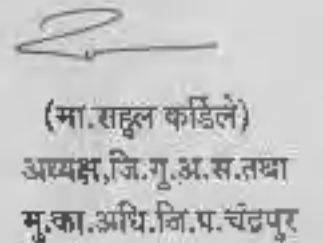 (मा.राहूल कर्डिले)
अध्यक्ष,जि.गु.अ.स.तथा
मु.का.अधि.जि.प.चंद्रपुर